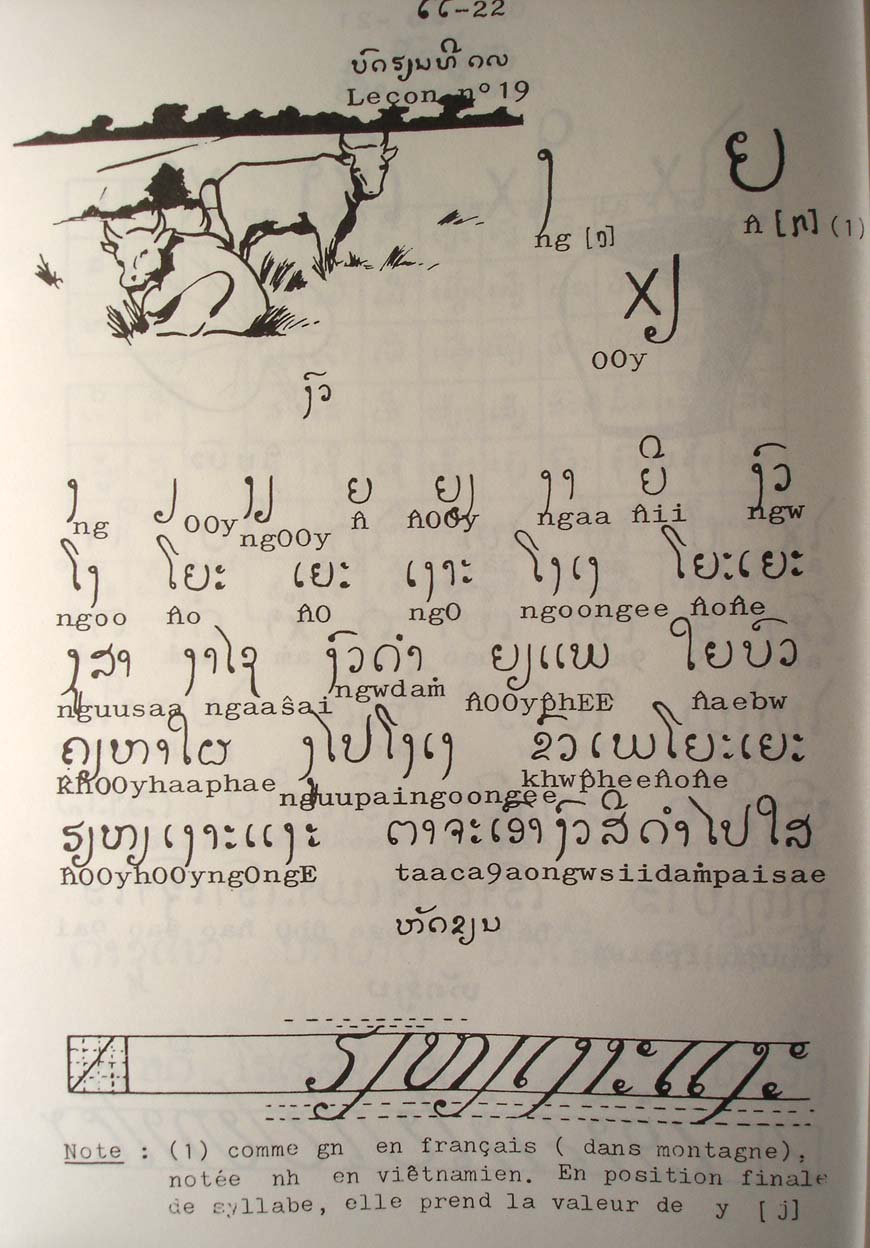 ໒໒-22
ບົດຮຽນທີ ໑໙
Leçon n° 19
ງ ຍ
ng [ŋ] n̂ [ɲ] (1)
Xຽ
OOy
ງົວ
ງ ຽ ງຽ ຍ ຍຽ ງາ ຍີ ງົວ
ng OOy ngOOy n̂ n̂OOy ngaa n̂ii ngw
ໂງ ໂຍະ ເຍະ ເງາະ ໂງເງ ໂຍະເຍະ
ngoo n̂o n̂O ngO ngoongee n̂on̂e
ງູສາ ງາໄຈ ງົວດຳ ຍຽແພ ໃຍບົວ
nguusaa ngaaŝai ngwdaṁ n̂OOyp̂hEE n̂aebw
ຄຽຫາໃຜ ງູໄປໂງເງ ຂົວເພໂຍະເຍະ
k̂hOOyhaaphae nguupaingoongee khwp̂heen̂on̂e
ຮຽຫຽເງາະແງະ ຕາຈະເອົາງົວສີດຳໄປໃສ
ĥOOyhOOyngOngE taaca9aongwsiidaṁpaisae
ຫັດຂຽນ
ຮຽຫຽເງາະແງະ
Note : (1) comme gn en français ( dans montagne),
notée nh en viêtnamien. En position finale
de syllabe, elle prend la valeur de y [j]